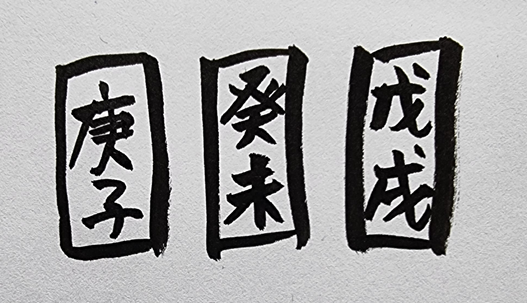 庚子
癸未
戊戌